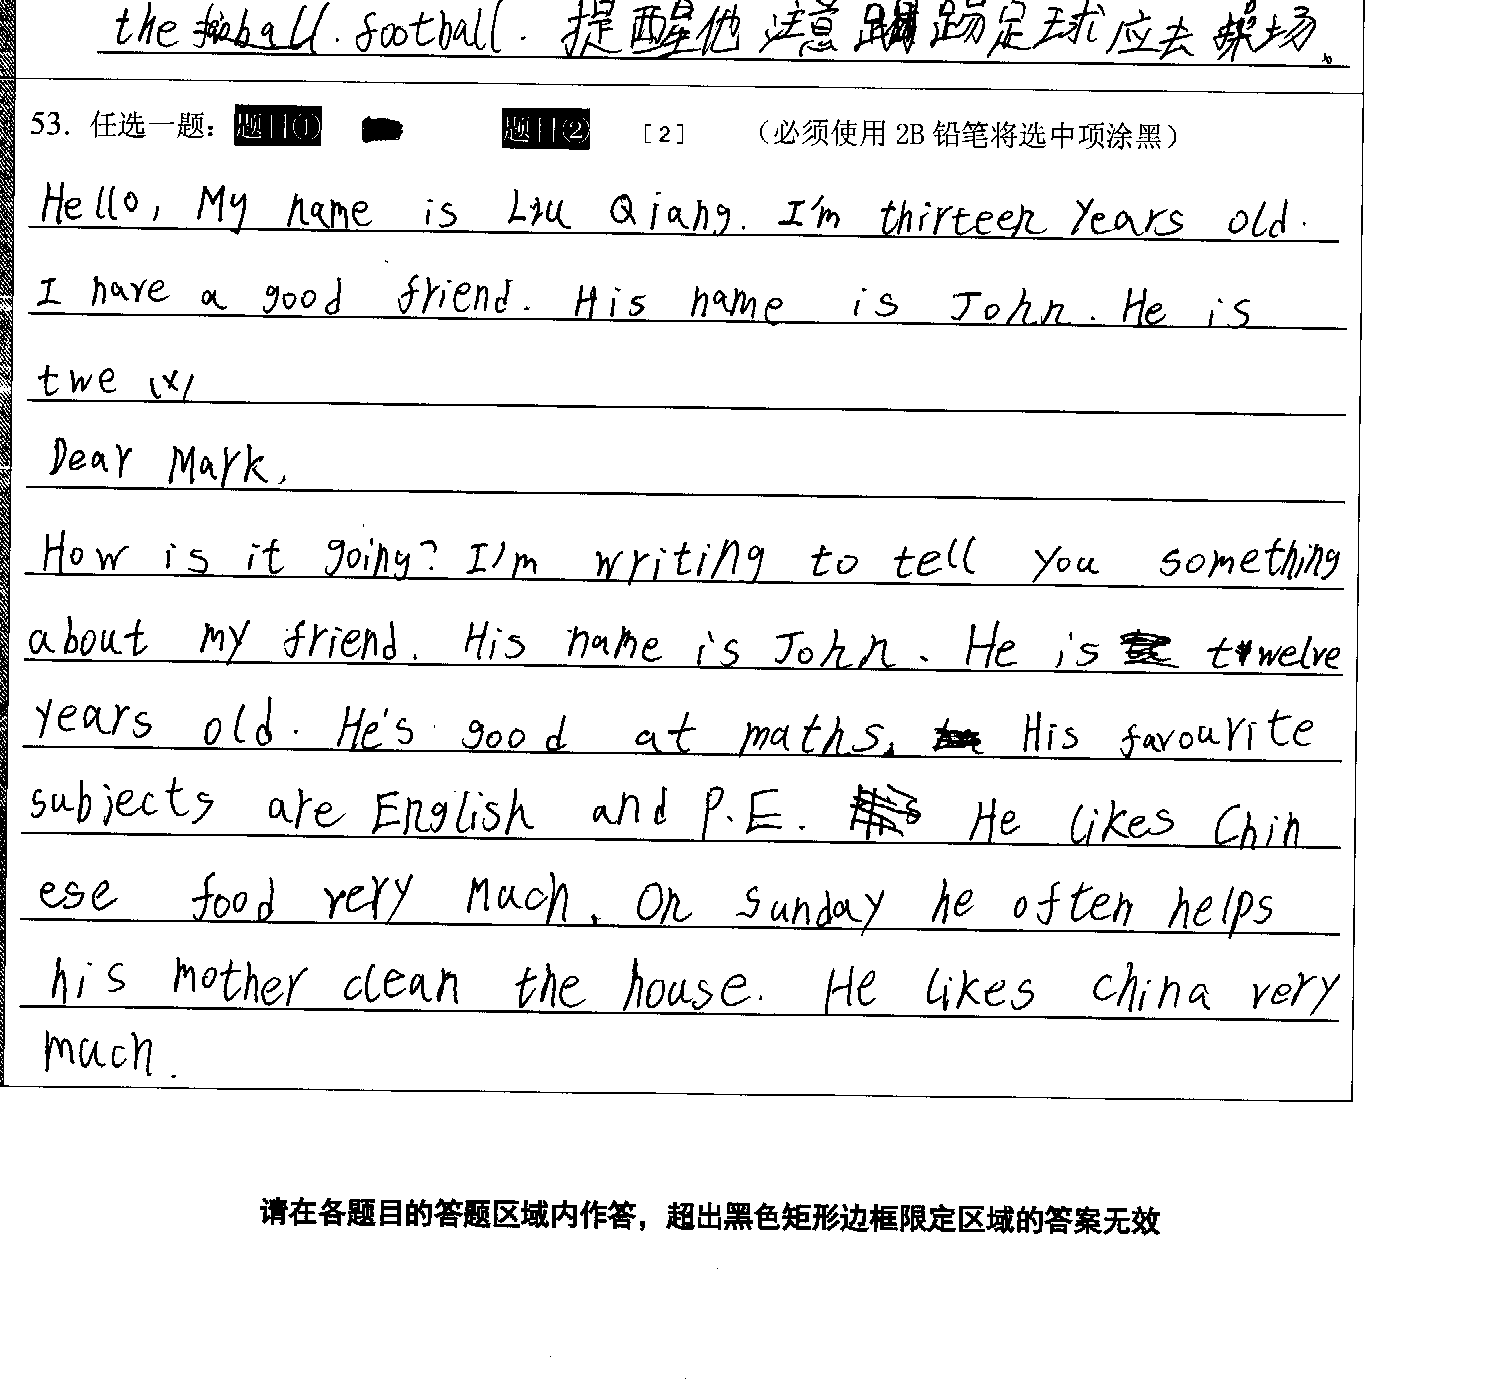 the football. football. 提醒他 注意 踢足球应去操场.
53. 任选一题: 题目① 题目② [2] (必须使用 2B 铅笔将选中项涂黑)
Hello, My name is Liu Qiang. I'm thirteen Years old.
I have a good friend. His name is John. He is
twe (x)
Dear Mark,
How is it going? I'm writing to tell you something
about my friend. His name is John. He is twelve
years old. He's good at maths. His favourite
subjects are English and P.E. He likes Chin
ese food very much. On Sunday he often helps
his mother clean the house. He likes china very
much.
请在各题目的答题区域内作答，超出黑色矩形边框限定区域的答案无效